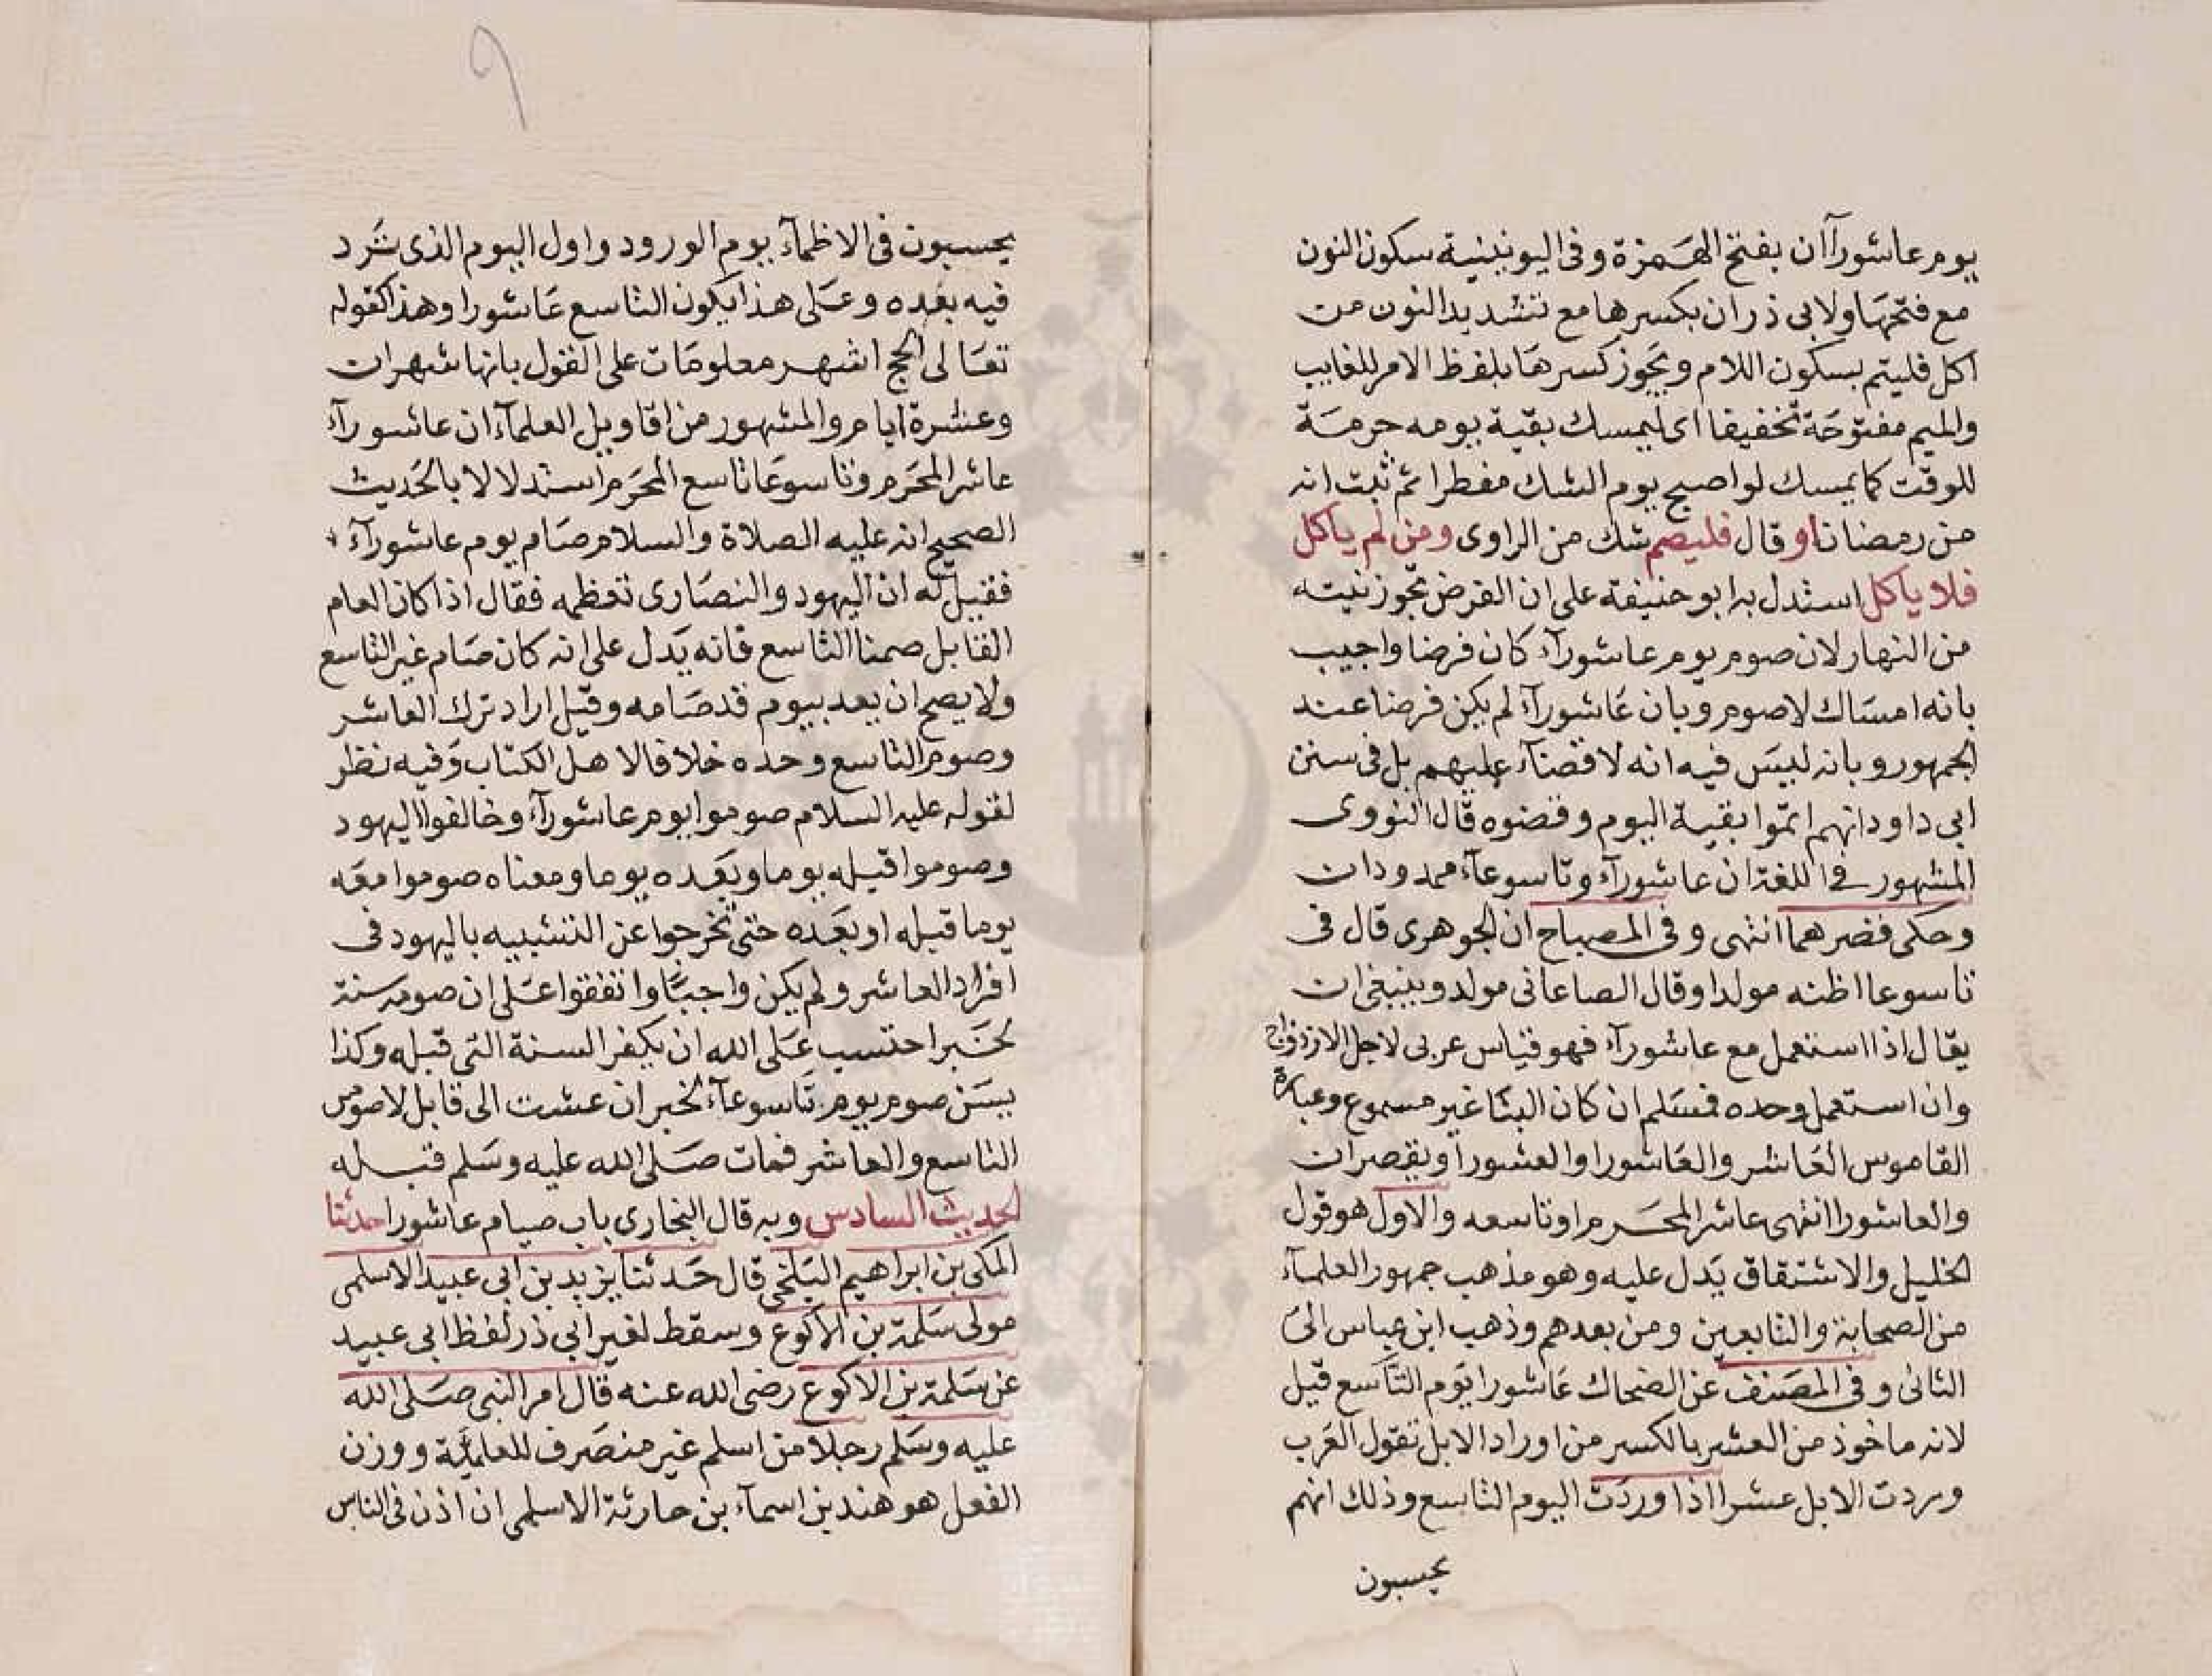 يوم عاشورآ ان بفتح الهمزة وفى اليونينية سكون النون
مع فتحها ولابى ذر ان بكسرها مع تشديد النون من
اكل فليتم بسكون اللام ويجوز كسرها بلفظ الامر للغايب
والميم مفتوحة تخفيفا اى ليمسك بقية يومه حرمة
للوقت كما يمسك لو اصبح يوم الشك مفطرا ثم ثبت انه
من رمضان او قال فليصم شك من الراوى ومن لم ياكل
فلا ياكل استدل به ابو حنيفة على ان الفرض تجوز نيته
من النهار لان صوم يوم عاشورآء كان فرضا واجيب
بانه امساك لا صوم وبان عاشورآء لم يكن فرضا عند
الجمهور وبانه ليس فيه انه لا قضآء عليهم بل فى سنن
ابى داود انهم اتموا بقية اليوم وقضوه قال النووى
المشهور فى اللغة ان عاشورآء وتاسوعآء ممدودان
وحكى قصرهما انتهى وفى المصباح ان الجوهرى قال فى
تاسوعا اظنه مولدا وقال الصاغانى مولد وينبغى ان
يقال اذا استعمل مع عاشورآء فهو قياس عربى لاجل الازدواج
وان استعمل وحده فمسلم ان كان البتا غير مسموع وعبارة
القاموس العاشر والعاشورا والعشورا ويقصران
والعاشورا انتهى عاشر المحرم او تاسعه والاول هو قول
الخليل والاشتقاق يدل عليه وهو مذهب جمهور العلمآء
من الصحابة والتابعين ومن بعدهم وذهب ابن عباس الى
الثانى وفى المصنف عن الضحاك عاشورا يوم التاسع قيل
لانه ماخوذ من العشر بالكسر من اوراد الابل تقول العرب
وردت الابل عشرا اذا وردت اليوم التاسع وذلك انهم
يحسبون
٩
يحسبون فى الاظمآء يوم الورود واول اليوم الذى ترد
فيه بعده وعلى هذا يكون التاسع عاشورا وهذا كقوله
تعالى الحج اشهر معلومات على القول بانها شهران
وعشرة ايام والمشهور من اقاويل العلمآء ان عاشورآء
عاشر المحرم وتاسوعا تاسع المحرم استدلالا بالحديث
الصحيح انه عليه الصلاة والسلام صام يوم عاشورآء
فقيل له ان اليهود والنصارى تعظمه فقال اذا كان العام
القابل صمنا التاسع فانه يدل على انه كان صام غير التاسع
ولا يصح ان يعد بيوم قد صامه وقيل اراد ترك العاشر
وصوم التاسع وحده خلافا لاهل الكتاب وفيه نظر
لقوله عليه السلام صوموا يوم عاشورآء وخالفوا اليهود
وصوموا قبله يوما وبعده يوما ومعناه صوموا معه
يوما قبله او بعده حتى تخرجوا عن التشبيه باليهود فى
افراد العاشر ولم يكن واجبا واتفقوا على ان صومه سنة
لخبر احتسب على الله ان يكفر السنة التى قبله وكذا
يسن صوم يوم تاسوعآء لخبر ان عشت الى قابل لاصومن
التاسع والعاشر فمات صلى الله عليه وسلم قبله
الحديث السادس وبه قال البخارى باب صيام عاشورا حدثنا
المكى بن ابراهيم البلخى قال حدثنا يزيد بن ابى عبيد الاسلمى
مولى سلمة بن الاكوع وسقط لغير ابى ذر لفظ ابى عبيد
عن سلمة بن الاكوع رضى الله عنه قال امر النبى صلى الله
عليه وسلم رجلا من اسلم غير منصرف للعلمية ووزن
الفعل هو هند بن اسمآء بن حارثة الاسلمى ان اذن فى الناس